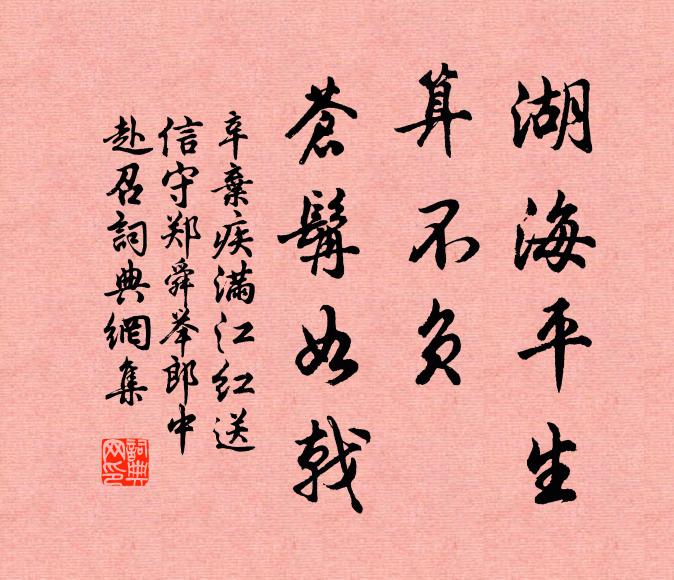 湖海平生
算不负
蒼髯如戟
辛棄疾满江红送
信守郑舜举郎中
赴召詞典網集
詞典
网印